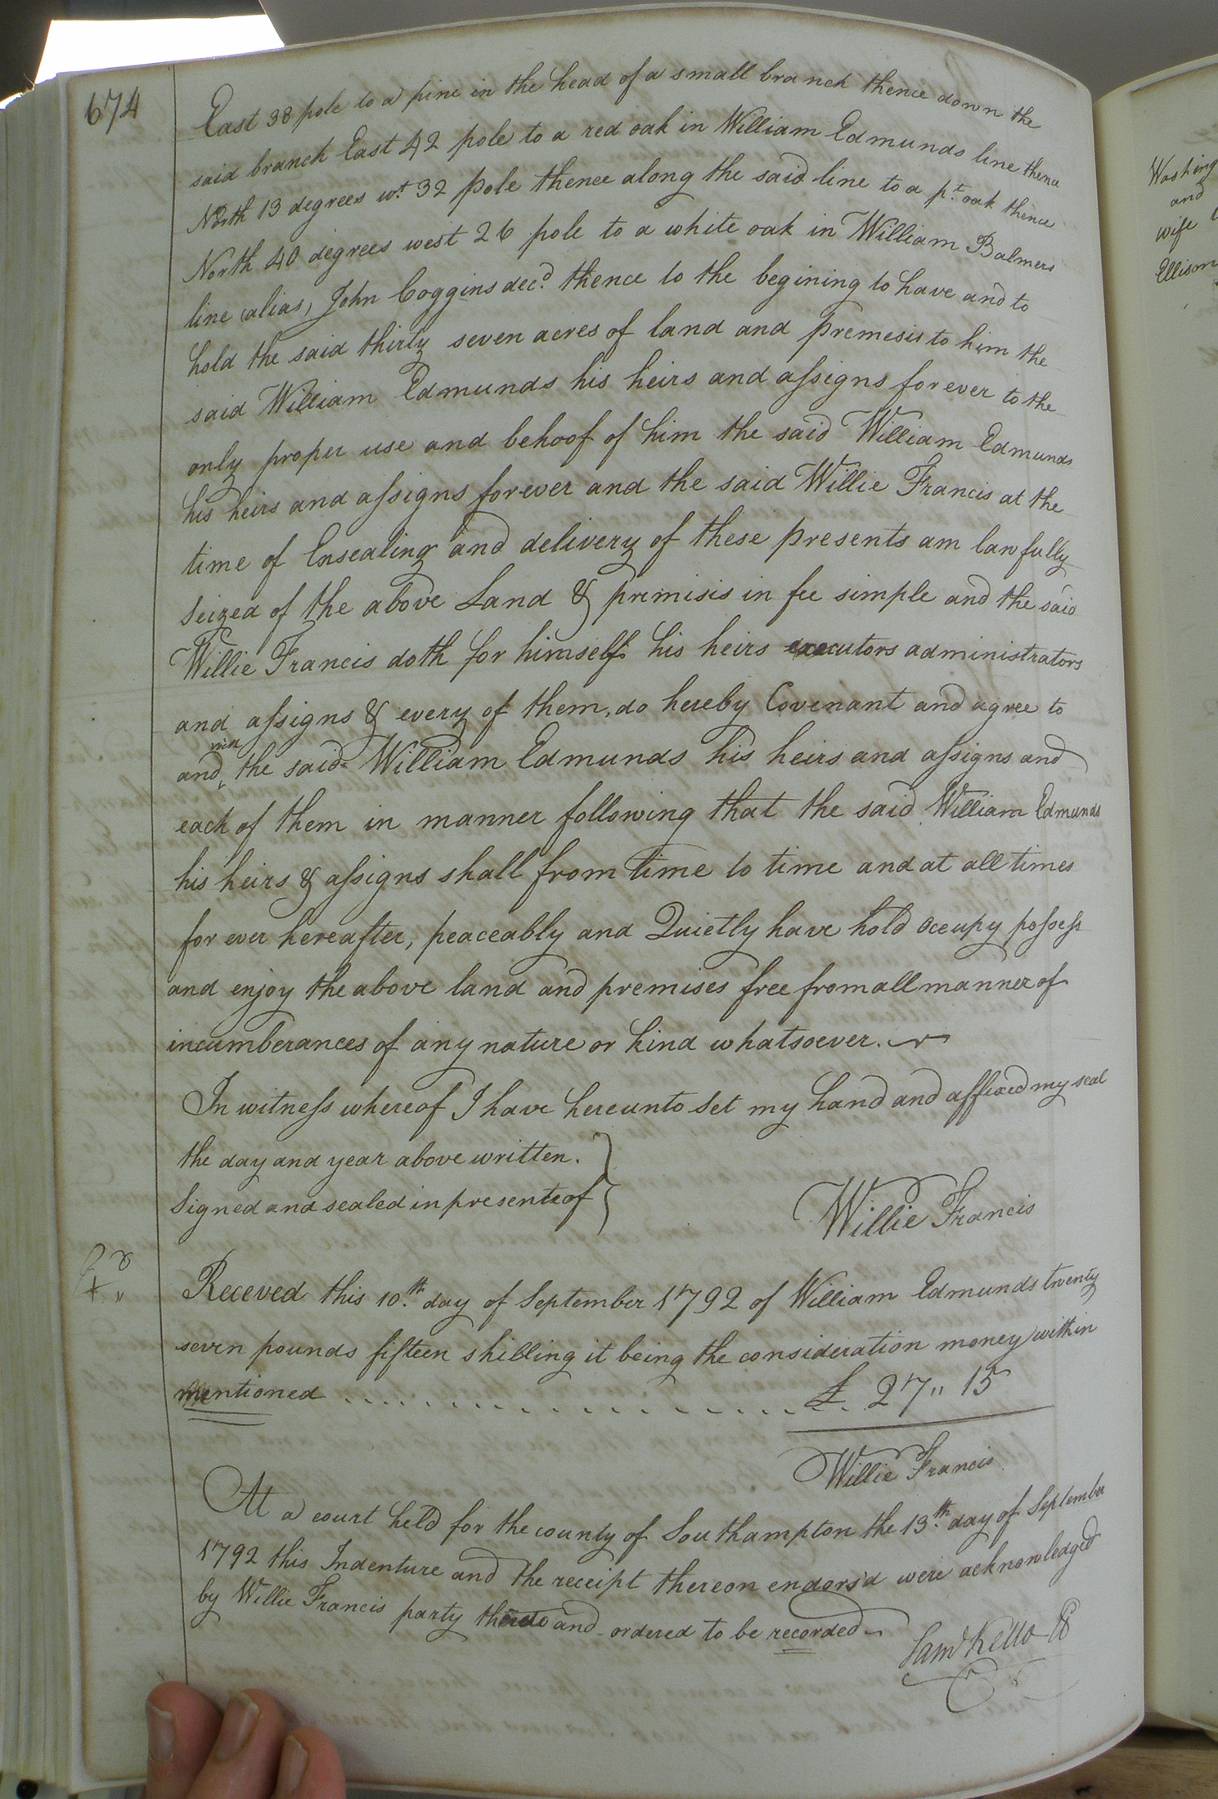 674
East 38 pole to a pine in the head of a small branch thence down the
said branch East 42 pole to a red oak in William Edmunds line thence
North 13 degrees wt. 32 pole thence along the said line to a pt. oak thence
North 40 degrees west 26 pole to a white oak in William Balmers
line (alias) John Coggins decd. thence to the begining to have and to
hold the said thirty seven acres of land and premesis to him the
said William Edmunds his heirs and assigns forever to the
only proper use and behoof of him the said William Edmunds
his heirs and assigns forever and the said Willie Francis at the
time of Ensealing and delivery of these presents am lawfully
Seized of the above Land & premisis in fee simple and the said
Willie Francis doth for himself his heirs executors administrators
and assigns & every of them, do hereby Covenant and agree to
and with the said William Edmunds his heirs and assigns and
each of them in manner following that the said William Edmunds
his heirs & assigns shall from time to time and at all times
for ever hereafter, peaceably and Quietly have hold occupy possess
and enjoy the above land and premises free from all manner of
incumberances of any nature or kind whatsoever.
In witness whereof I have hereunto set my hand and affixed my seal
the day and year above written.
Signed and sealed in presents of
Willie Francis
Receved this 10th. day of September 1792 of William Edmunds twenty
seven pounds fifteen shilling it being the consideration money within
mentioned . . . . . . . . . . . . . . . £ 27 " 15
Willie Francis
At a court held for the county of Southampton the 13th. day of September
1792 this Indenture and the receipt thereon endors'd were acknowledged
by Willie Francis party thereto and ordered to be recorded
Saml Kello
Washing
and
wife
Ellison